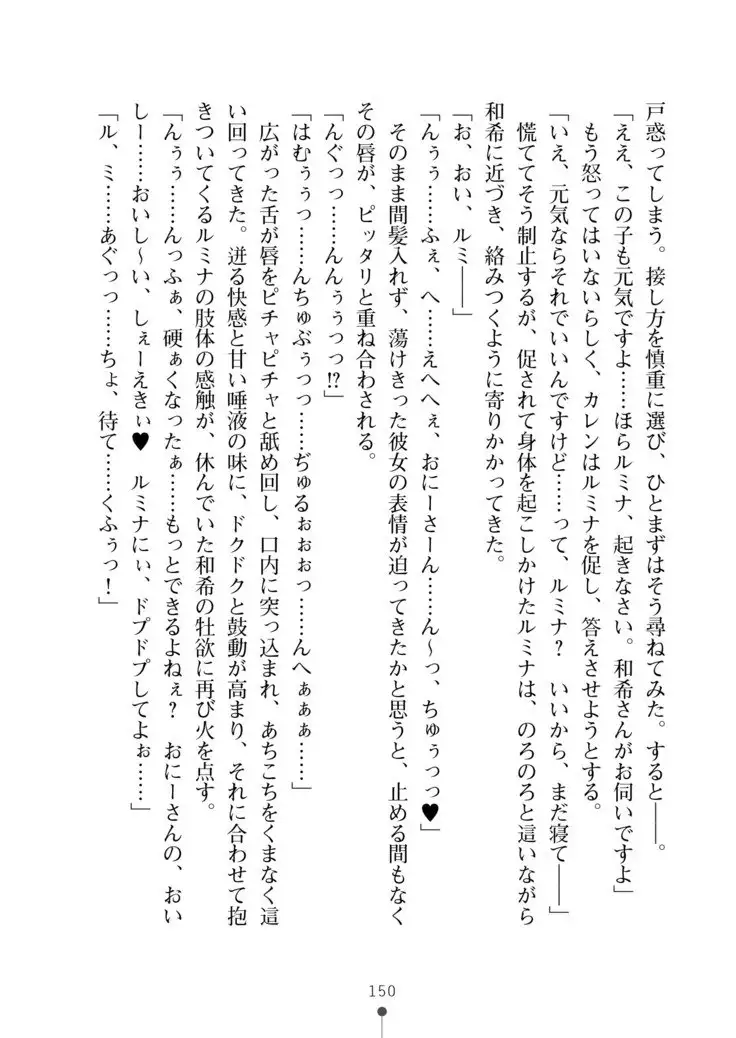 戸惑ってしまう。接し方を慎重に選び、ひとまずはそう尋ねてみた。すると――。
「ええ、この子も元気ですよ……ほらルミナ、起きなさい。和希さんがお伺いですよ」
もう怒ってはいないらしく、カレンはルミナを促し、答えさせようとする。
「いえ、元気ならそれでいいんですけど……って、ルミナ？　いいから、まだ寝て――」
慌ててそう制止するが、促されて身体を起こしかけたルミナは、のろのろと這いながら
和希に近づき、絡みつくように寄りかかってきた。
「お、おい、ルミ――」
「んぅぅ……ふぇ、へ……えへへぇ、おにーさーん……ん～っ、ちゅぅっっ♥」
そのまま間髪入れず、蕩けきった彼女の表情が迫ってきたかと思うと、止める間もなく
その唇が、ピッタリと重ね合わされる。
「んぐっっ……んんぅぅっっ!?」
「はむぅぅっ……んちゅぶぅっっ……ぢゅるぉぉぉっ……んへぁぁぁ……」
広がった舌が唇をピチャピチャと舐め回し、口内に突っ込まれ、あちこちをくまなく這
い回ってきた。迸る快感と甘い唾液の味に、ドクドクと鼓動が高まり、それに合わせて抱
きついてくるルミナの肢体の感触が、休んでいた和希の牡欲に再び火を点す。
「んぅぅ……んっふぁ、硬ぁくなったぁ……もっとできるよねぇ？　おにーさんの、おい
しー……おいし～い、しぇーえきぃ♥　ルミナにぃ、ドプドプしてよぉ……」
「ル、ミ……あぐっっ……ちょ、待て……くふぅっ！」
150